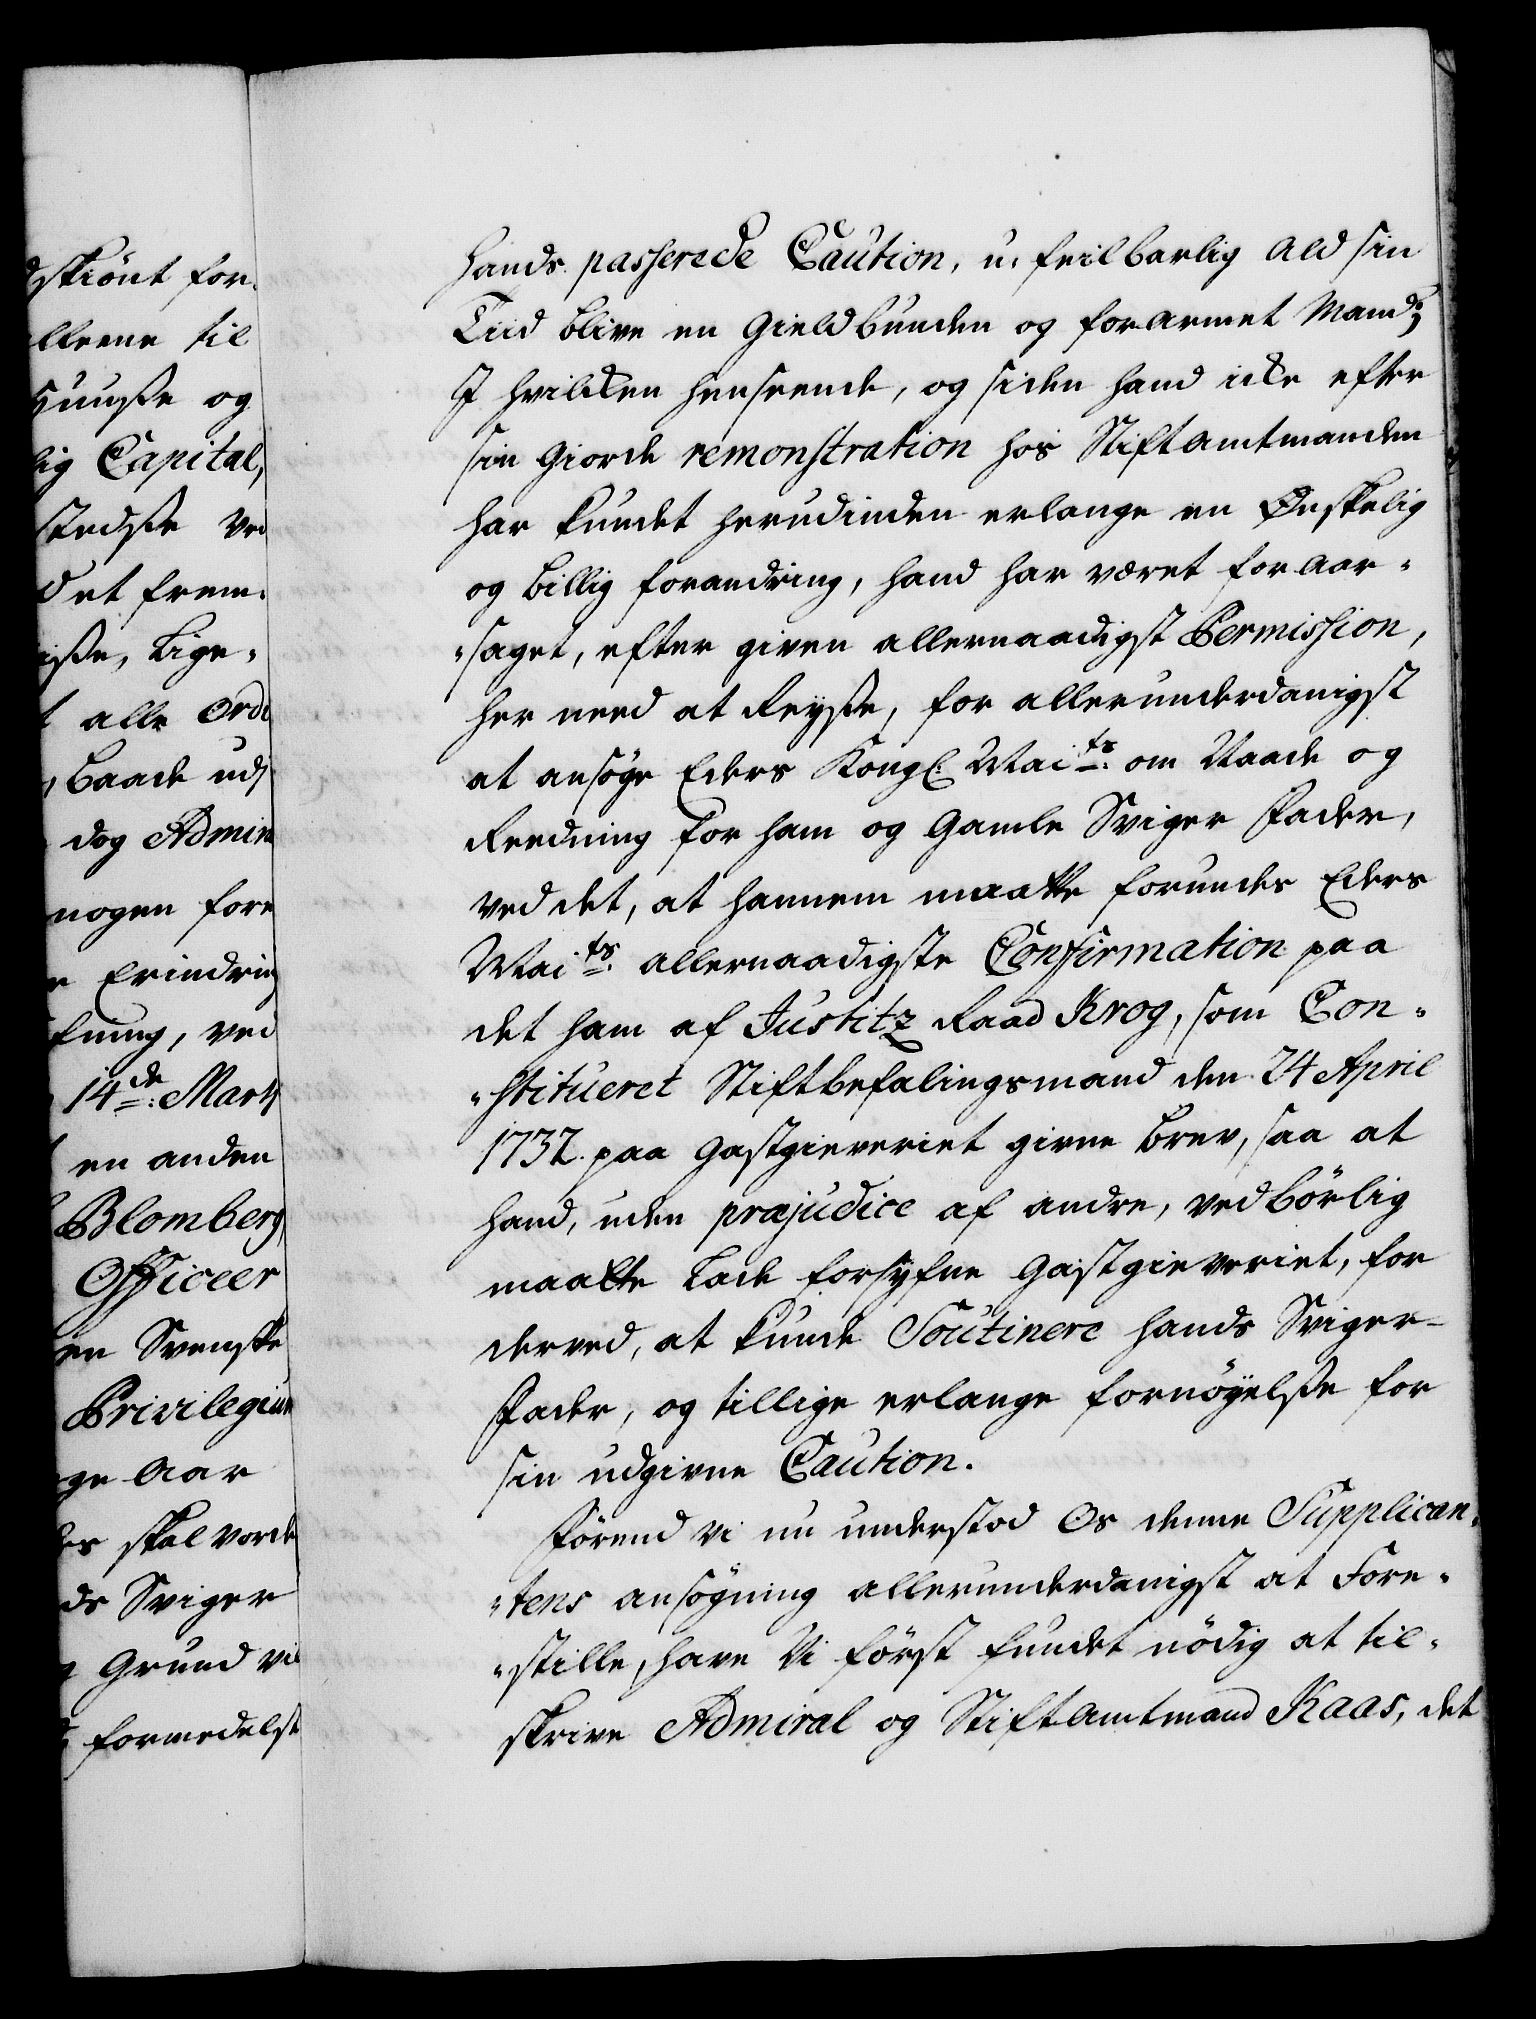 dskiönt for-
lleene til
Huuße og
lig Capital,
stedße ved
det frem-
iße, Lige-
t alle Ord
, baade ud
dog Admin
nogen fore
e Erindring
kning, ved
14de Marty
en anden
Blomberg,
Officeer
en Svenske
Privilegium
ge Aar
es skal vorde
ds Sviger
Grund vil
formedelst
hands passerede Caution, u-feilbarlig ald sin
Tiid blive en Gieldbunden og forarmet Mand;
I hvilcken henseende, og siden hand icke efter
sin giorde remonstration hos Stiftamtmanden
har kundet herudinden erlange en Ønskelig
og billig forandring, hand har været foraar-
"saget, efter given allernaadigst Permission,
her need at Reyße, for allerunderdanigst
at ansøge Eders Kongl: Mai:ts om Naade og
Reedning for ham og Gamle Sviger Fader,
ved det, at hannem maatte forundes Eders
Mai:ts allernaadigste Confirmation paa
det ham af Justitz Raad Krog, som Con-
"stitueret Stiftbefalingsmand den 24 April
1732. paa Gastgieveriet givne Brev, saa at
hand, uden præjudice af andre, vedbörlig
maatte Lade forsyfne Gastgieveriet, for
derved, at kunde Soutinere hands Sviger-
Fader, og tillige erlange fornöyelße for
sin udgivne Caution.
Förend vi nu understod Os denne Supplican-
"tens ansögning allerunderdanigst at Fore-
"stille, have Vi först fundet nödig at til-
skrive Admiral og Stiftamtmand Kaas, det